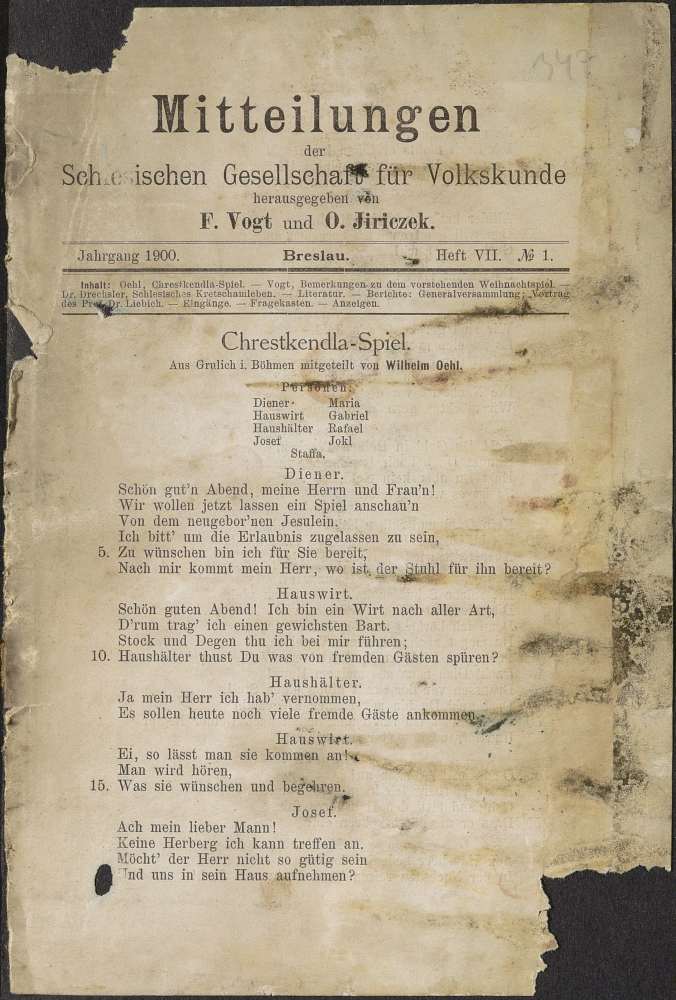 349
Mitteilungen
der
Schlesischen Gesellschaft für Volkskunde
herausgegeben von
F. Vogt und O. Jiriczek.
Jahrgang 1900. Breslau. Heft VII. № 1.
Inhalt: Oehl, Chrestkendla-Spiel. — Vogt, Bemerkungen zu dem vorstehenden Weihnachtspiel. —
Dr. Drechsler, Schlesisches Kretschamleben. — Literatur. — Berichte: Generalversammlung; Vortrag
des Prof. Dr. Liebich. — Eingänge. — Fragekasten. — Anzeigen.
Chrestkendla-Spiel.
Aus Grulich i. Böhmen mitgeteilt von Wilhelm Oehl.
Personen:
Diener Maria
Hauswirt Gabriel
Haushälter Rafael
Josef Jokl
Staffa.
Diener.
Schön gut'n Abend, meine Herrn und Frau'n!
Wir wollen jetzt lassen ein Spiel anschau'n
Von dem neugebor'nen Jesulein.
Ich bitt' um die Erlaubnis zugelassen zu sein,
5. Zu wünschen bin ich für Sie bereit,
Nach mir kommt mein Herr, wo ist der Stuhl für ihn bereit?
Hauswirt.
Schön guten Abend! Ich bin ein Wirt nach aller Art,
D'rum trag' ich einen gewichsten Bart.
Stock und Degen thu ich bei mir führen;
10. Haushälter thust Du was von fremden Gästen spüren?
Haushälter.
Ja mein Herr ich hab' vernommen,
Es sollen heute noch viele fremde Gäste ankommen.
Hauswirt.
Ei, so lässt man sie kommen an!
Man wird hören,
15. Was sie wünschen und begehren.
Josef.
Ach mein lieber Mann!
Keine Herberg ich kann treffen an.
Möcht' der Herr nicht so gütig sein
Und uns in sein Haus aufnehmen?